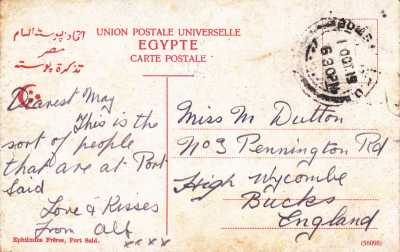 UNION POSTALE UNIVERSELLE
EGYPTE
CARTE POSTALE
مصر
تذكرة بوسته
1 OCT 19
6.30 PM
Dearest May
This is the
sort of people
that are at Port
Said
Love & Kisses
from Alf
xxxx
Miss M Dutton
No 3 Pennington Rd
High Wycombe
Bucks
England
Ephtimios Frères, Port Saïd.
(56098)